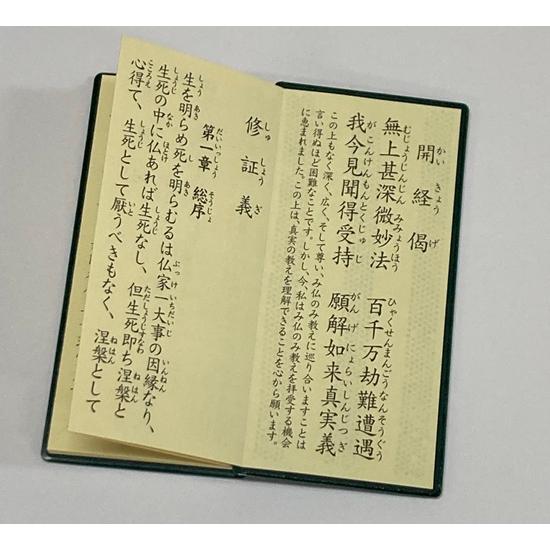 開経偈
無上甚深微妙法　百千万劫難遭遇
我今見聞得受持　願解如来真実義
この上もなく深く、広く、そして尊い、み仏のみ教えに巡り合いますことは
言い得ぬほど困難なことです。しかし、今、私はみ仏のみ教えを拝受する機会
に恵まれました。この上は、真実の教えを理解できることを心から願います。
修証義
第一章　総序
生を明らめ死を明らむるは仏家一大事の因縁なり、
生死の中に仏あれば生死なし、但生死即ち涅槃と
心得て、生死として厭うべきもなく、涅槃として